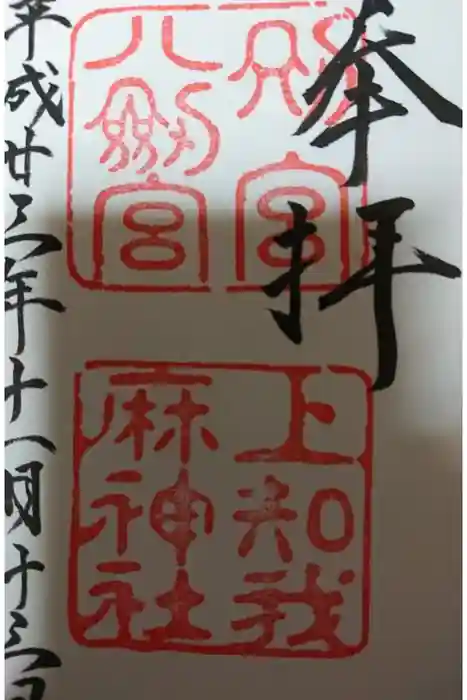 奉拝
別宮
八剱宮
上知我
麻神社
平成廿三年十一月十三日